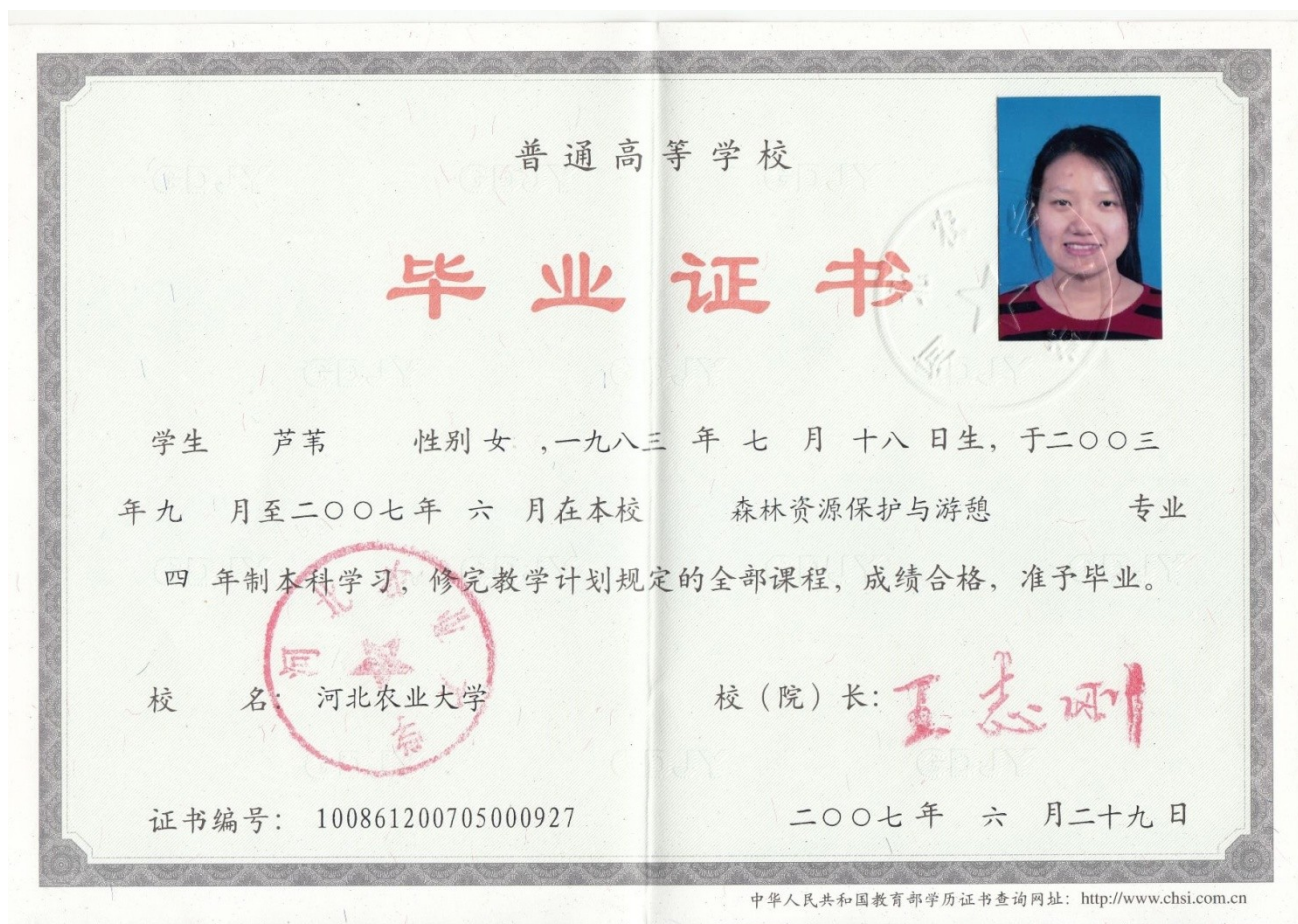 普通高等学校
毕业证书
学生 芦苇 性别 女 ,一九八三 年 七 月 十八 日生，于二〇〇三
年九 月至二〇〇七年 六 月在本校 森林资源保护与游憩 专业
四 年制本科学习，修完教学计划规定的全部课程，成绩合格，准予毕业。
校 名：河北农业大学
校（院）长：王志刚
证书编号： 100861200705000927
二〇〇七年 六 月二十九日
中华人民共和国教育部学历证书查询网址：http://www.chsi.com.cn
河北农业大学